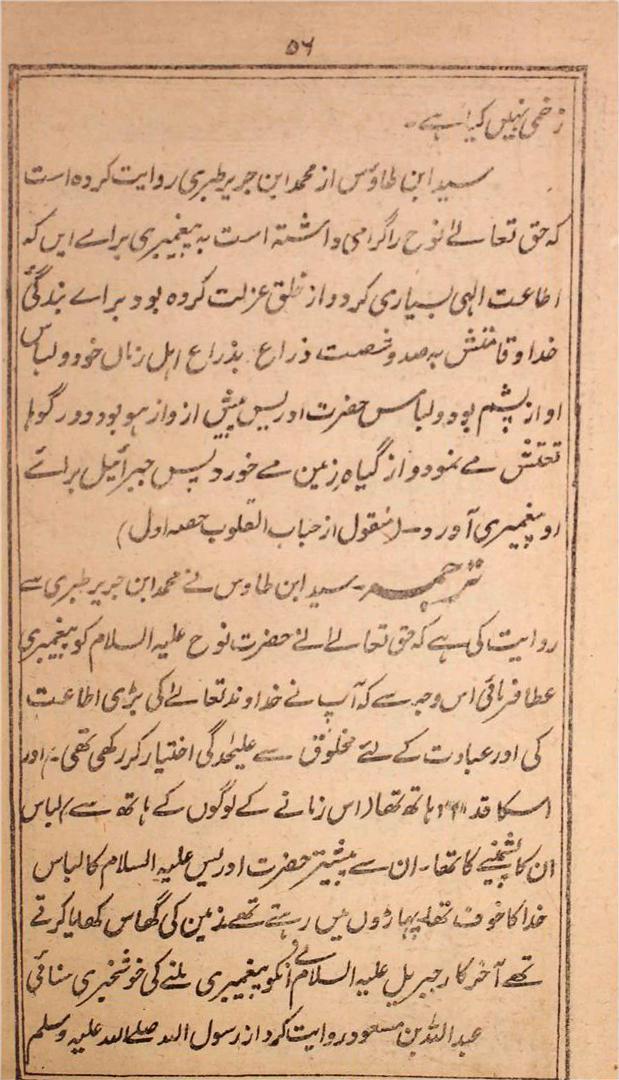 ۵۶
زخمی نہیں کیا ہے۔
سید ابن طاؤس از محمد ابن جریر طبری روایت کردہ است
کہ حق تعالےٰ نوح را گرامی داشتہ است بہ پیغمبری براے ایں کہ
اطاعت الہی بسیاری کرد و از خلق عزلت کردہ بود براے بندگی
خدا و قامتش سہ صد و شصت ذراع بذراع اہل زماں خود و لباس
او از پشم بود و لباس حضرت ادریس پیش از و از مو بود و در کوہا
تعیش مے نمود و از گیاہ زمین مے خورد پس جبرائیل برائے
او پیغمبری آورد۔ (منقول از حیات القلوب حصہ اول)
ترجمہ۔ سید ابن طاوس نے محمد ابن جریر طبری سے
روایت کی ہے کہ حق تعالےٰ نے حضرت نوح علیہ السلام کو پیغمبری
عطا فرمائی اس وجہ سے کہ آپ نے خداوند تعالےٰ کی بڑی اطاعت
کی اور عبادت کے لئے مخلوق سے علیحدگی اختیار کر رکھی تھی۔ اور
اسکا قد ہاتھ تھا (اس زمانے کے لوگوں کے ہاتھ سے) لباس
ان کا پشمینے کا تھا۔ ان سے پیشتر حضرت ادریس علیہ السلام کا لباس
خدا کا خوف تھا پہاڑوں میں رہتے تھے زمین کی گھاس کھایا کرتے
تھے آخر کار جبریل علیہ السلام نے انکو پیغمبری ملنے کی خوشخبری سنائی
عبد اللہ بن مسعود روایت کرد از رسول اللہ صلے اللہ علیہ وسلم